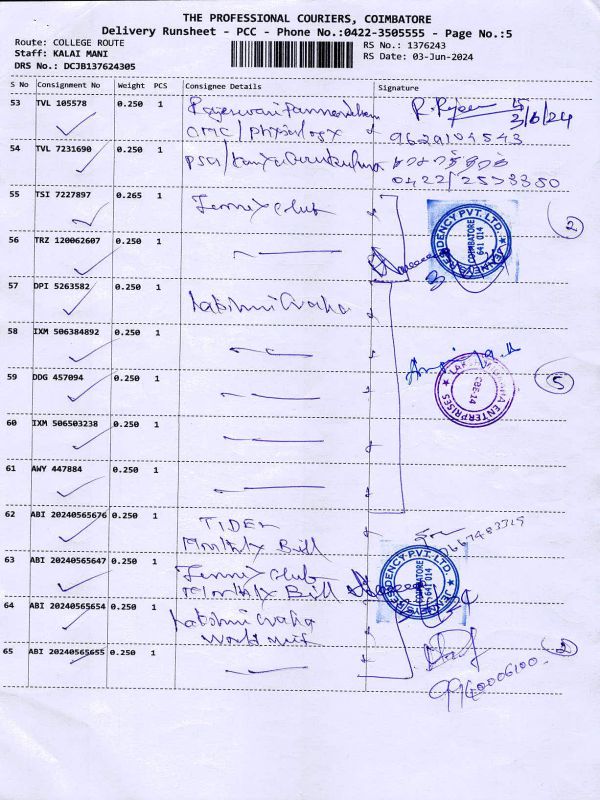 THE PROFESSIONAL COURIERS, COIMBATORE
Delivery Runsheet - PCC - Phone No.:0422-3505555 - Page No.:5
Route: COLLEGE ROUTE
Staff: KALAI MANI
DRS No.: DCJB137624305
RS No.: 1376243
RS Date: 03-Jun-2024
S No Consignment No Weight PCS Consignee Details Signature
53 TVL 105578 0.250 1
CMC/Physiology 9629104543
3/6/24
54 TVL 7231690 0.250 1
0422/2573350
55 TSI 7227897 0.265 1 Jenney Club
JENNEYS RESIDENCY PVT. LTD.
COIMBATORE
641 014
2
56 TRZ 120062607 0.250 1
57 DPI 5263582 0.250 1
58 IXM 506384892 0.250 1
59 DDG 457094 0.250 1
ENTERPRISES
CBE-14
5
60 IXM 506503238 0.250 1
61 AWY 447884 0.250 1
62 ABI 20240565676 0.250 1 TIDEL
Monthly Bill
63 ABI 20240565647 0.250 1 Jenney Club
Monthly Bill
JENNEYS RESIDENCY PVT. LTD.
COIMBATORE
641 014
64 ABI 20240565654 0.250 1
65 ABI 20240565655 0.250 1
2
9940006100